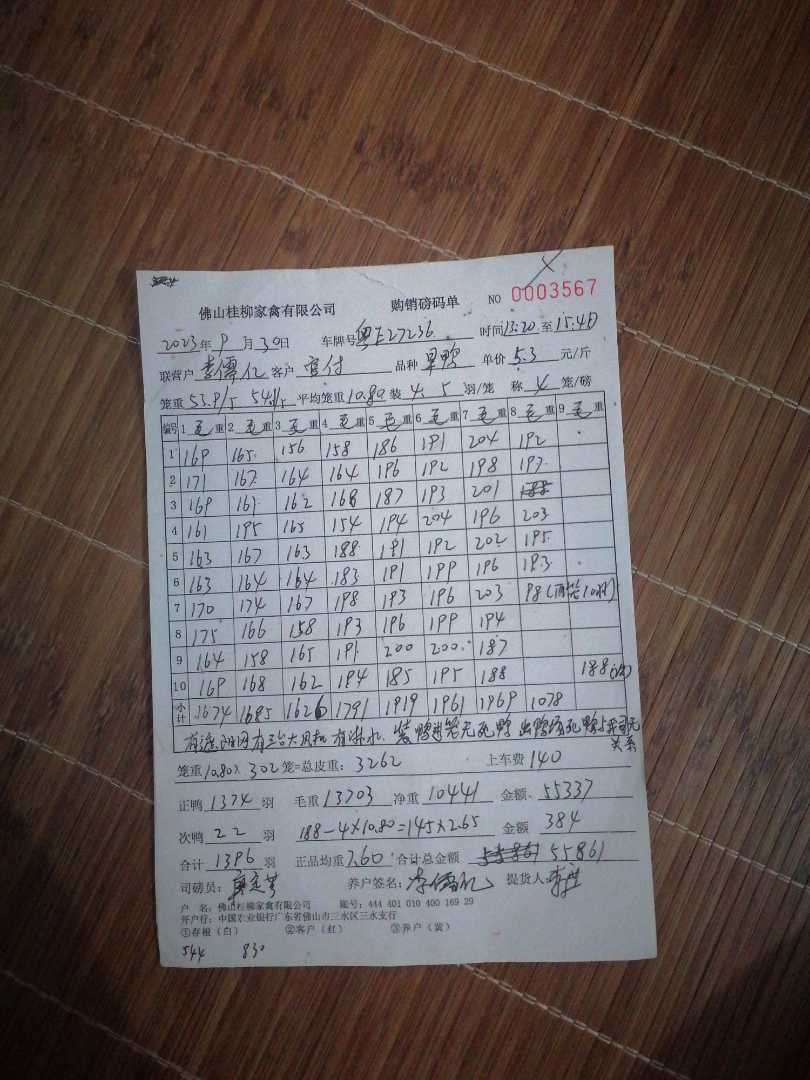 佛山桂柳家禽有限公司 购销磅码单 NO 0003567
2023年 9月30日 车牌号粤E27236 时间13:20至15:40
联营户 李儒亿 客户 官付 品种 单价5.3元/斤
笼重53.9/5 54/5 平均笼重10.80装4.5羽/笼 称4笼/磅
编号 1毛重 2毛重 3毛重 4毛重 5毛重 6毛重 7毛重 8毛重 9毛重
1 169 165 156 158 186 191 204 192
2 171 167 164 164 196 192 198 197
3 169 161 162 168 187 193 201
4 161 195 165 154 194 204 196 203
5 163 167 163 188 191 192 202 195
6 163 164 164 183 191 199 196 193
7 170 174 167 198 193 196 203 98
8 175 166 158 193 196 199 194
9 164 158 165 191 200 200 187
10 169 168 162 194 185 195 188 188
小计 1674 1685 1626 1791 1919 1961 1969 1078
有遮阴网有三台大风机 有淋水 装鸭进笼无死鸭 与我司无关系
笼重10.80×302笼=总皮重:3262 上车费140
正鸭1374羽 毛重13703 净重10441 金额、55337
次鸭22羽 188-4×10.80=145×2.65 金额384
合计1396羽 正品均重7.60 合计总金额 55861
司磅员: 养户签名:李儒亿 提货人:
户 名:佛山桂柳家禽有限公司 账号:444 401 010 400 169 29
开户行:中国农业银行广东省佛山市三水区三水支行
①存根(白) ②客户(红) ③养户(黄)
544 830